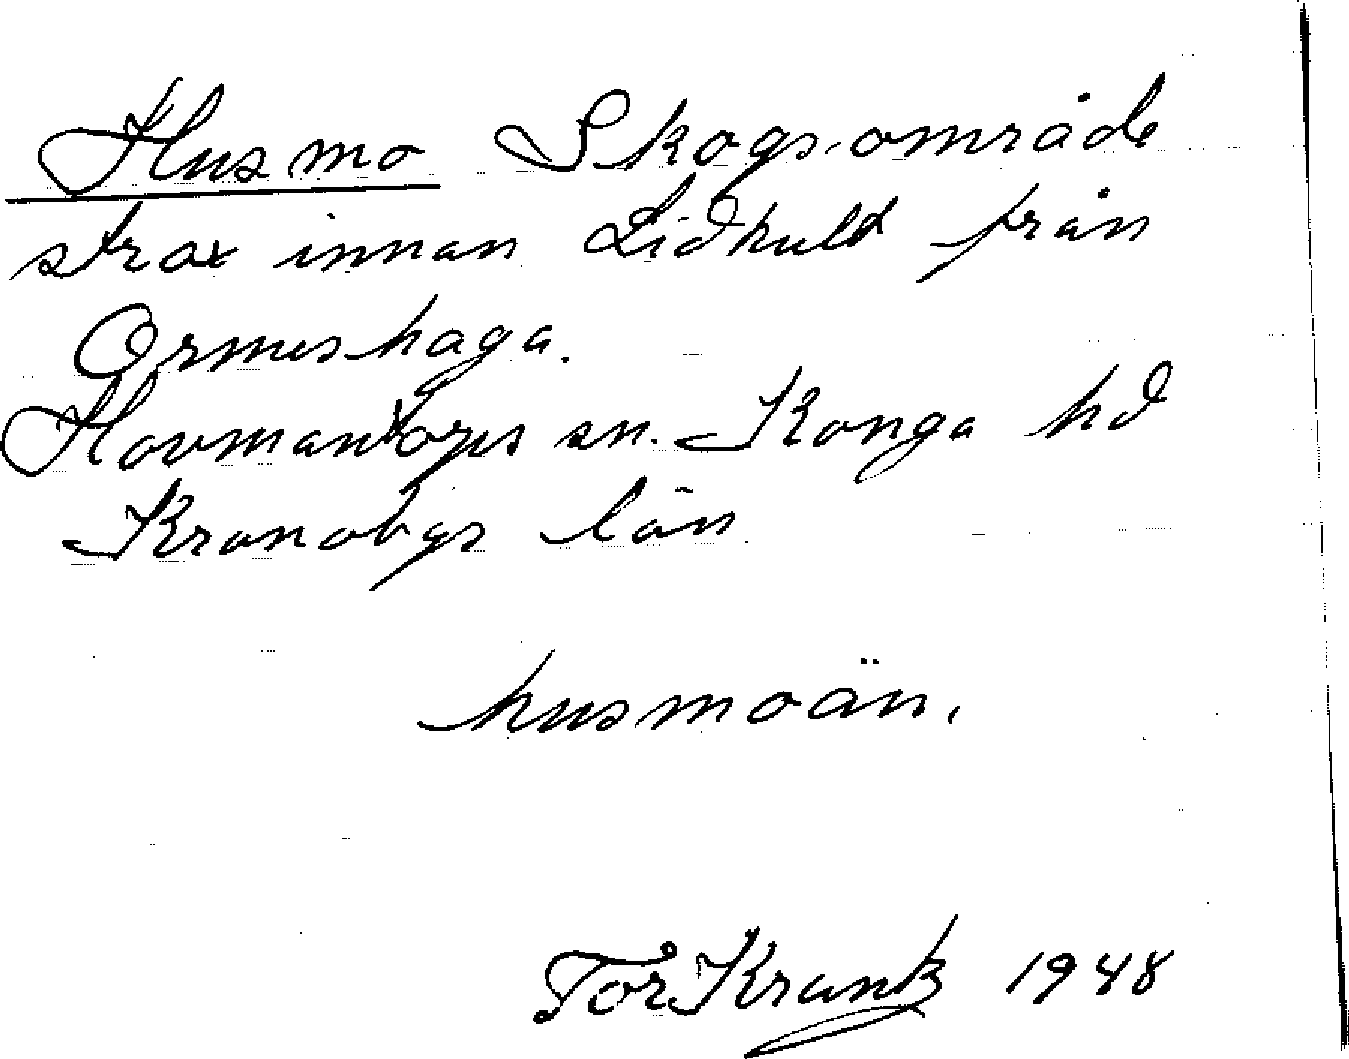 Husmo Skogsområde
strax innan Lidhult från
Ormeshaga.
Hovmantorps sn. Konga hd
Kronobgs län.
husmoän.
Tor Krank 1948